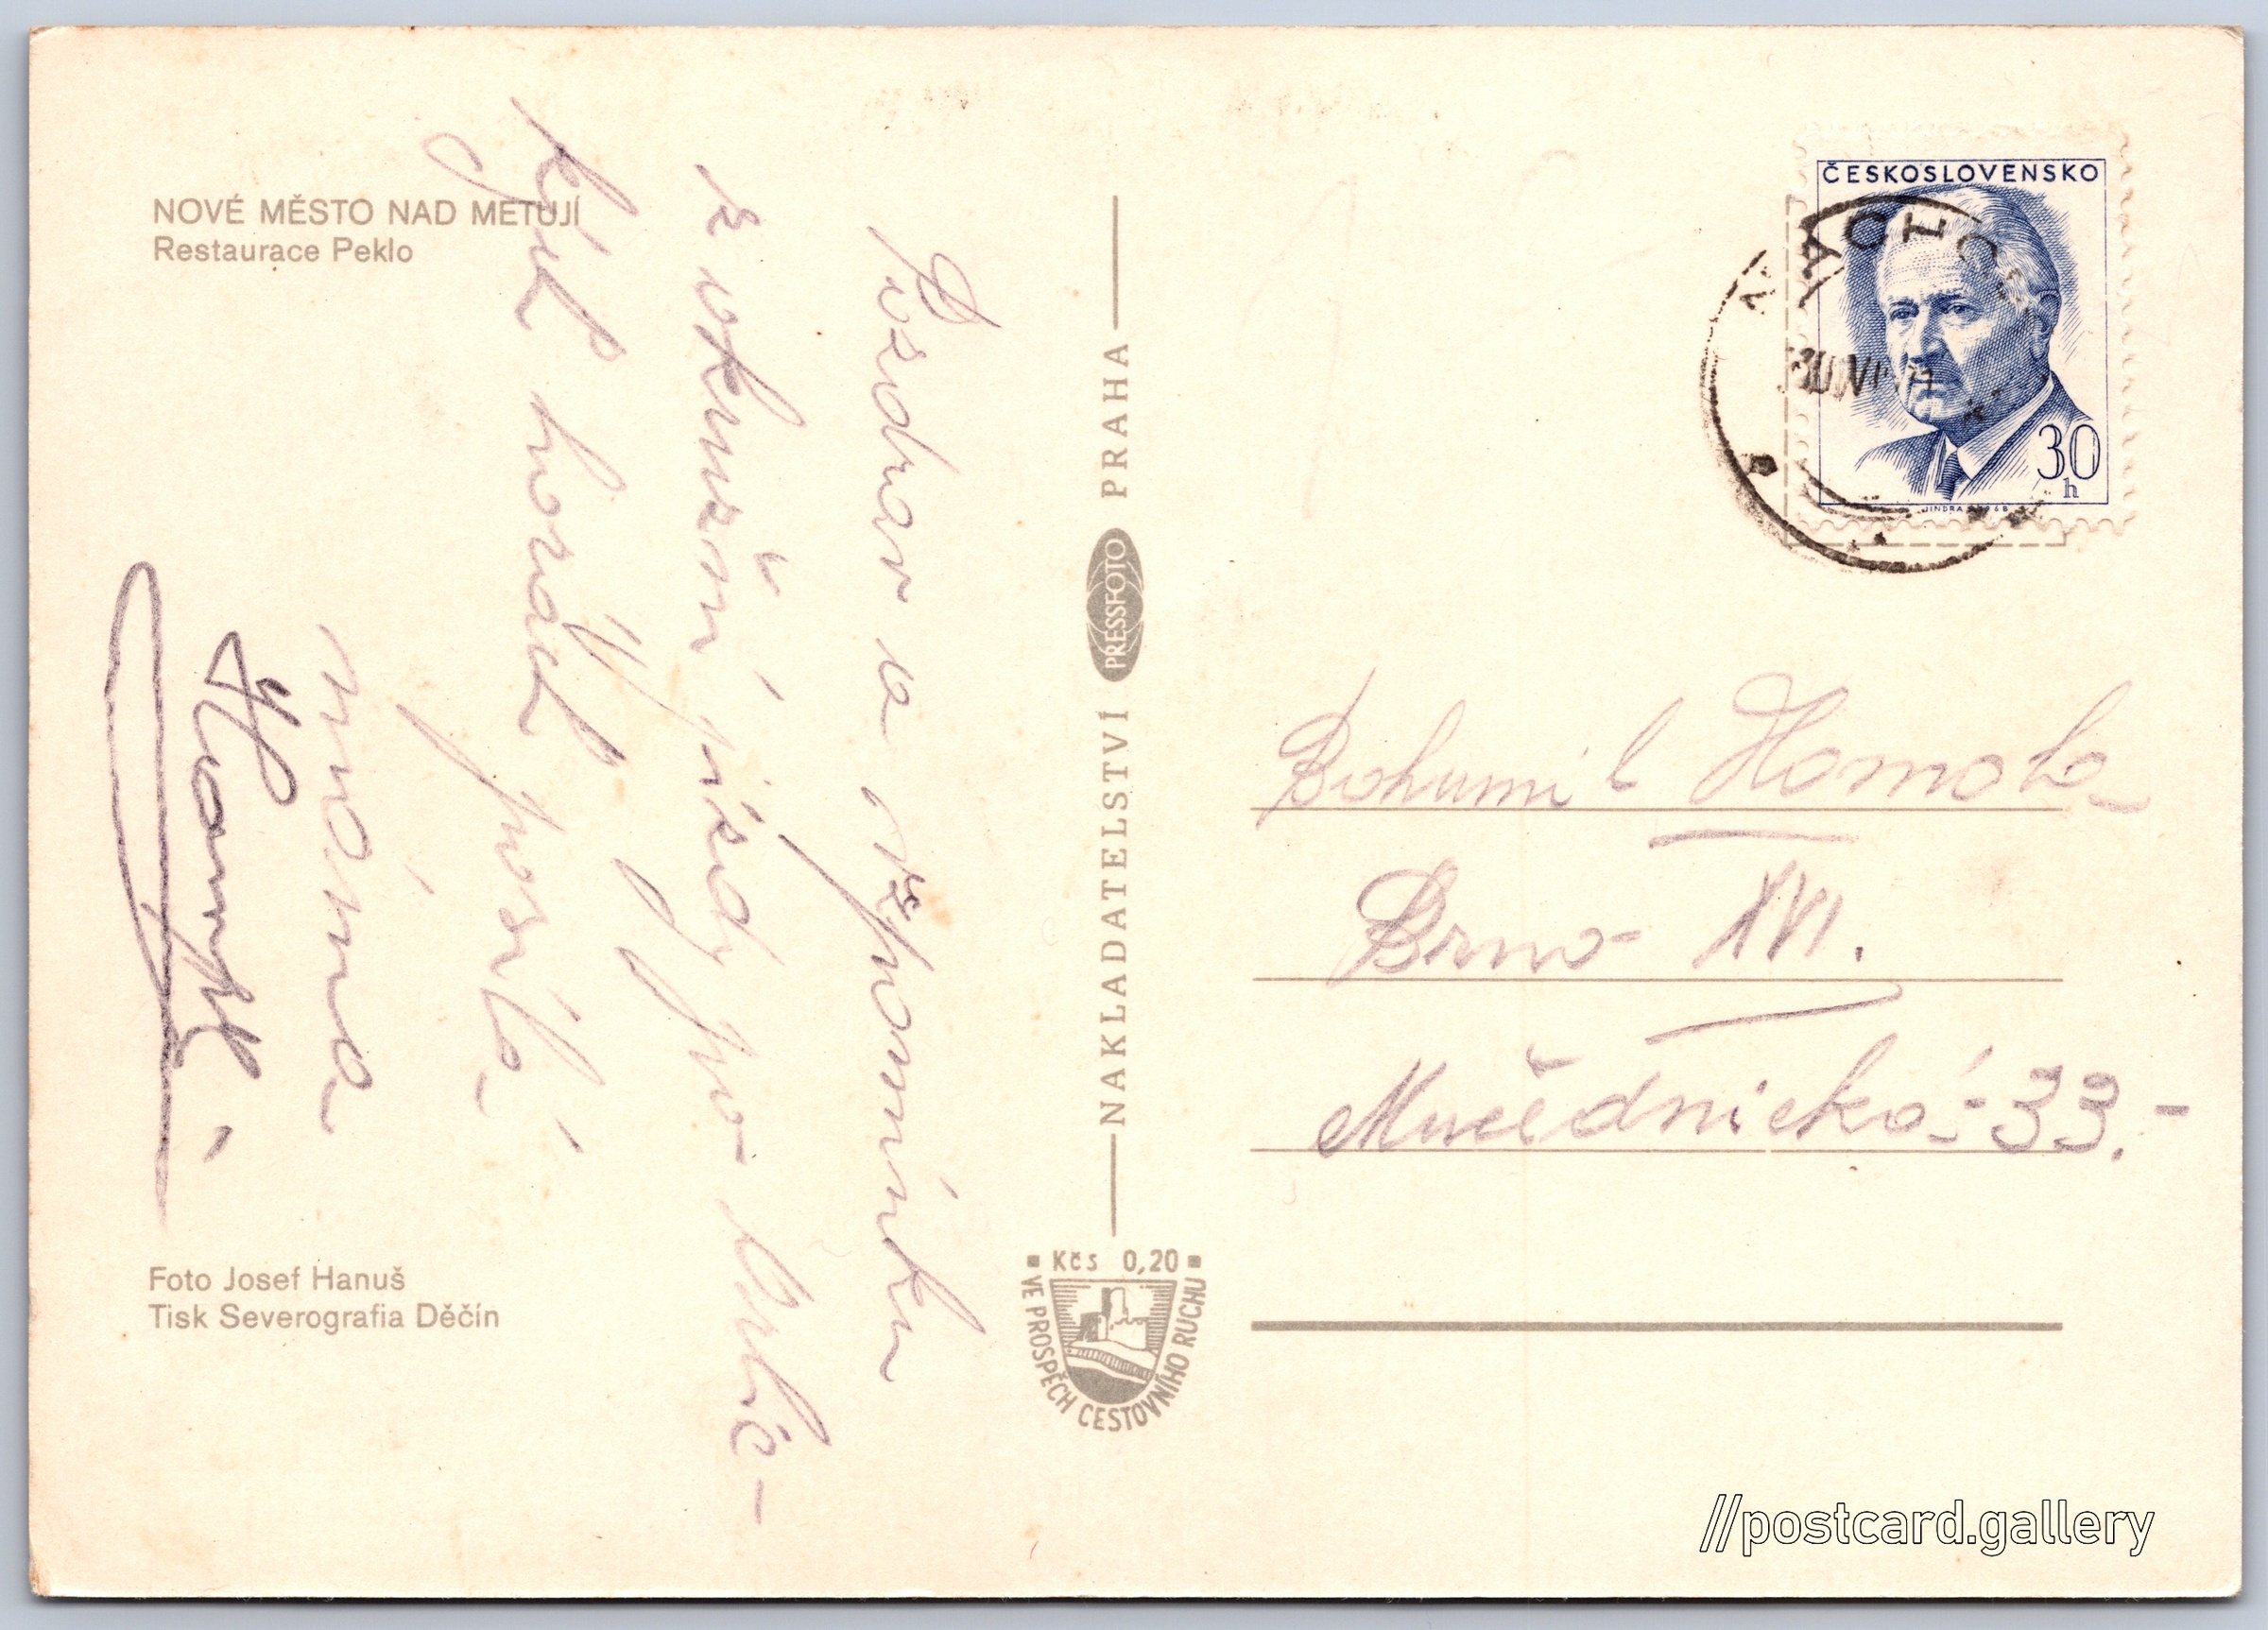 NOVÉ MĚSTO NAD METUJÍ
Restaurace Peklo
Pozdrav a vzpomínku
z okružní jízdy po Orlic-
kých horách posílá
máma
Foto Josef Hanuš
Tisk Severografia Děčín
NAKLADATELSTVÍ PRESSFOTO PRAHA
Kčs 0,20
VE PROSPĚCH CESTOVNÍHO RUCHU
ČESKOSLOVENSKO
30
h
JINDRA 1968
NÁCHOD
Bohumil Homola
Brno- XVI.
Mučednická-33.-
//postcard.gallery